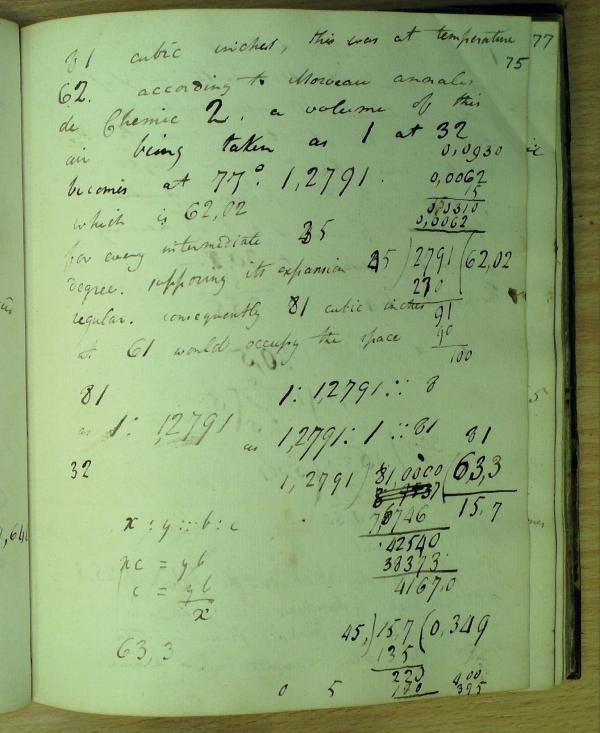 81 cubic inches, this was at temperature
77
75
62. according to Morveau annales
de Chemie 2. a volume of this
air being taken as 1 at 32
0,0930
becomes at 77°. 1,2791.
0,0062
15
which is 62,02
0,0310
0,0062
for every intermediate 35
degree. supposing its expansion
45 ) 2791 ( 62,02
270
regular. consequently 81 cubic inches
91
at 61 would occupy the space
90
100
81 1: 1,2791 :: 8
as 1: 1,2791 as 1,2791: 1 :: 81 81
32 1,2791 ) 81,0000 ( 63,3
15.7
7,6746
x : y :: b : c
42540
xc = yb
38373
c = yb
41670
x
45,) 15,7 ( 0,349
63,3
135
220 400
0 5 180 395